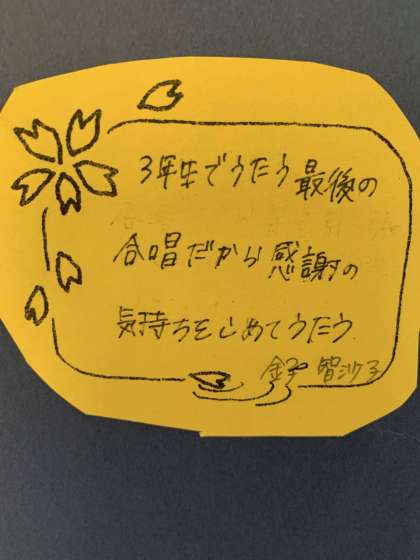 3年生でうたう最後の
合唱だから感謝の
気持ちをこめてうたう
金子 智沙子